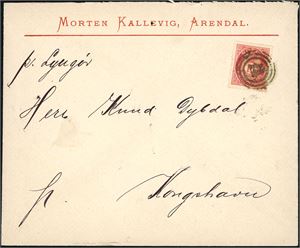 MORTEN KALLEVIG, ARENDAL.
pr. Lyngör
Herr Knud Dybdal
pr. Kongshavn